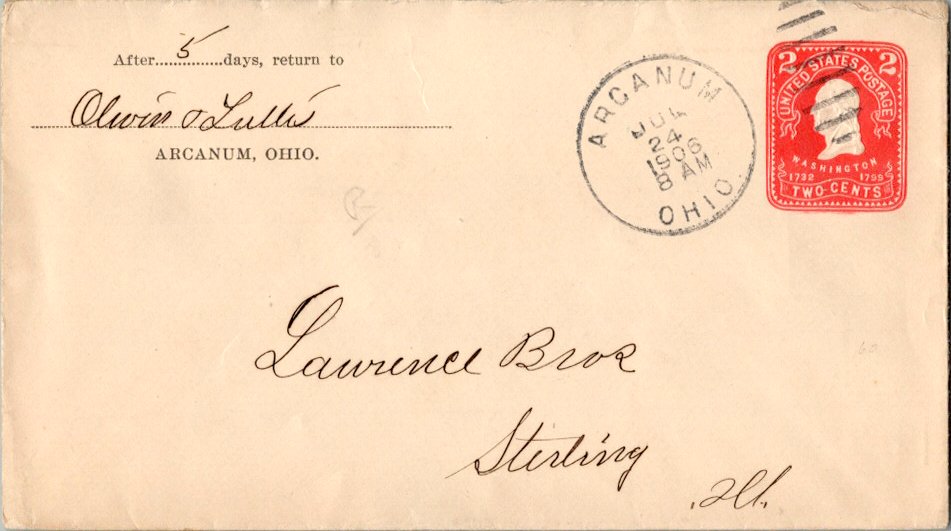 After 5 days, return to
Olwin & Tullis
ARCANUM, OHIO.
ARCANUM
JUL
24
1906
8 AM
OHIO
2 2
UNITED STATES POSTAGE
WASHINGTON
1732 1799
TWO CENTS
Lawrence Bros
Sterling
Ill.